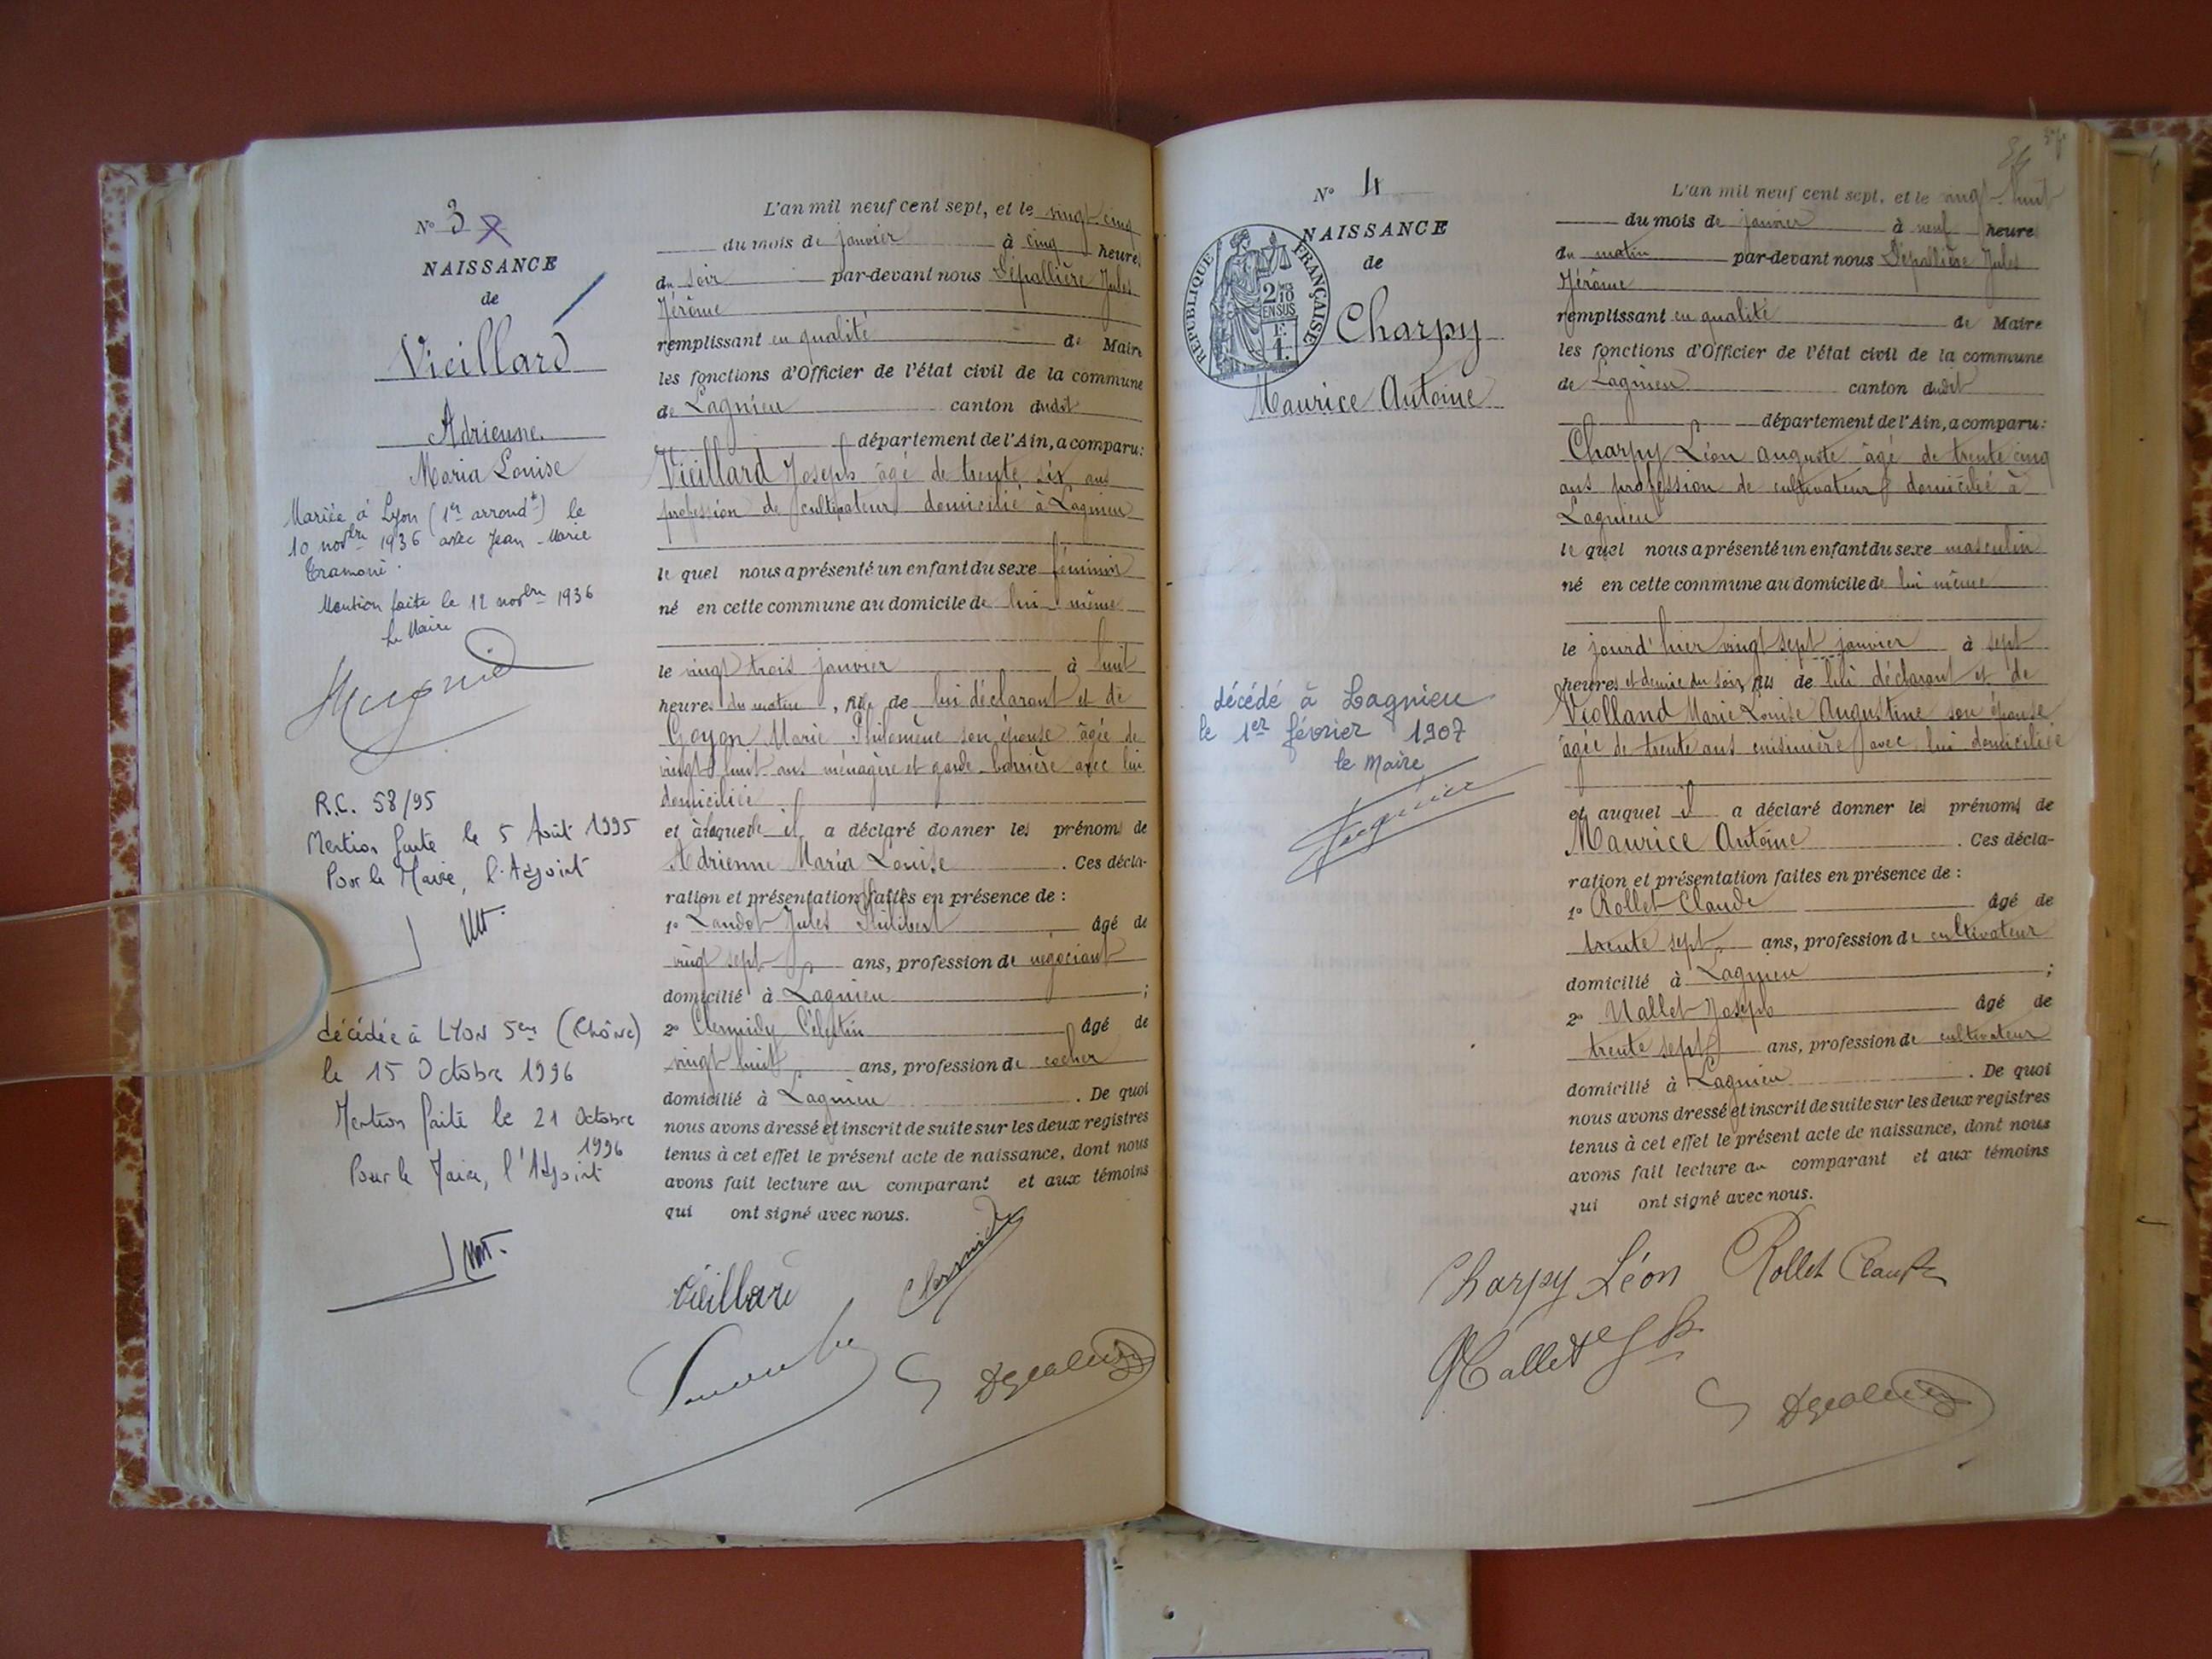 N° 3
NAISSANCE
de
Vieillard
Adrienne
Maria Louise
Mariée à Lyon (1er arrondt) le
10 novbre 1936 avec Jean-Marie
Tramoni.
Mention faite le 12 novbre 1936
Le Maire
R.C. 58/95
Mention faite le 5 Août 1995
Pour le Maire, l'Adjoint
décédée à LYON 5em (Rhône)
le 15 Octobre 1996
Mention faite le 21 Octobre
1996
Pour le Maire, l'Adjoint
L'an mil neuf cent sept, et le vingt cinq
du mois de janvier à cinq heures
du soir par-devant nous Dépallière Jules
Jérôme
remplissant en qualité de Maire
les fonctions d'Officier de l'état civil de la commune
de Lagnieu canton dudit
département de l'Ain, a comparu:
Vieillard Joseph âgé de trente six ans
profession de cultivateur domicilié à Lagnieu
le quel nous a présenté un enfant du sexe féminin
né en cette commune au domicile de lui même
le vingt trois janvier à huit
heures du matin, fille de lui déclarant et de
Goyon Marie Philomène son épouse âgée de
vingt huit ans ménagère et garde-barrière avec lui
domiciliée
et à laquelle il a déclaré donner les prénoms de
Adrienne Maria Louise. Ces décla-
ration et présentation faites en présence de :
1° Landot Jules Philibert âgé de
vingt sept ans, profession de négociant
domicilié à Lagnieu ;
2° Clermidy Célestin âgé de
vingt huit ans, profession de cocher
domicilié à Lagnieu. De quoi
nous avons dressé et inscrit de suite sur les deux registres
tenus à cet effet le présent acte de naissance, dont nous
avons fait lecture au comparant et aux témoins
qui ont signé avec nous.
Vieillard Clermidy
N° 4
NAISSANCE
de
REPUBLIQUE FRANÇAISE
2 MES
10
EN SUS
1 F.
Charpy
Maurice Antoine
décédé à Lagnieu
le 1er février 1907
le Maire
54
L'an mil neuf cent sept, et le vingt-huit
du mois de janvier à neuf heures
du matin par-devant nous Dépallière Jules
Jérôme
remplissant en qualité de Maire
les fonctions d'Officier de l'état civil de la commune
de Lagnieu canton dudit
département de l'Ain, a comparu:
Charpy Léon Auguste âgé de trente cinq
ans profession de cultivateur domicilié à
Lagnieu
le quel nous a présenté un enfant du sexe masculin
né en cette commune au domicile de lui même
le jourd'hier vingt sept janvier à sept
heures et demie du soir, fils de lui déclarant et de
Violland Marie Louise Augustine son épouse
âgée de trente ans cuisinière avec lui domiciliée
et auquel il a déclaré donner les prénoms de
Maurice Antoine. Ces décla-
ration et présentation faites en présence de :
1° Rollet Claude âgé de
trente sept ans, profession de cultivateur
domicilié à Lagnieu ;
2° Mallet Joseph âgé de
trente sept ans, profession de cultivateur
domicilié à Lagnieu. De quoi
nous avons dressé et inscrit de suite sur les deux registres
tenus à cet effet le présent acte de naissance, dont nous
avons fait lecture au comparant et aux témoins
qui ont signé avec nous.
Charpy Léon Rollet Claude
Mallet Jh